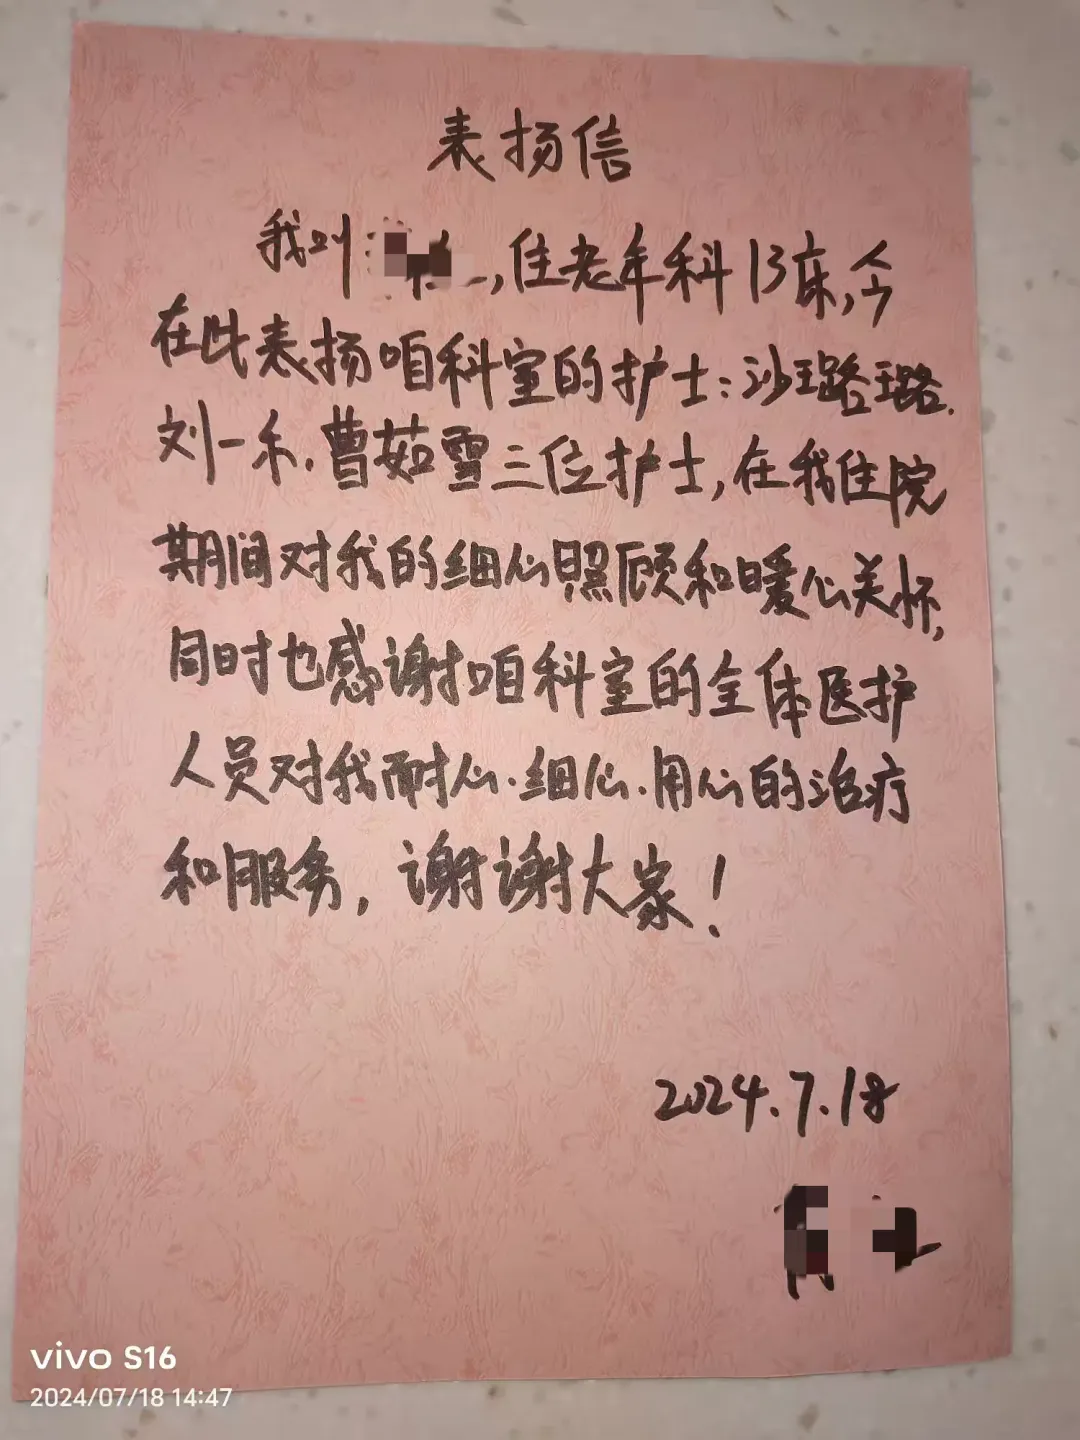 表扬信
我叫 ,住老年科13床,今
在此表扬咱科室的护士:沙璐璐.
刘一禾.曹茹雪三位护士,在我住院
期间对我的细心照顾和暖心关怀,
同时也感谢咱科室的全体医护
人员对我耐心.细心.用心的治疗
和服务,谢谢大家!
2024.7.18
vivo S16
2024/07/18 14:47